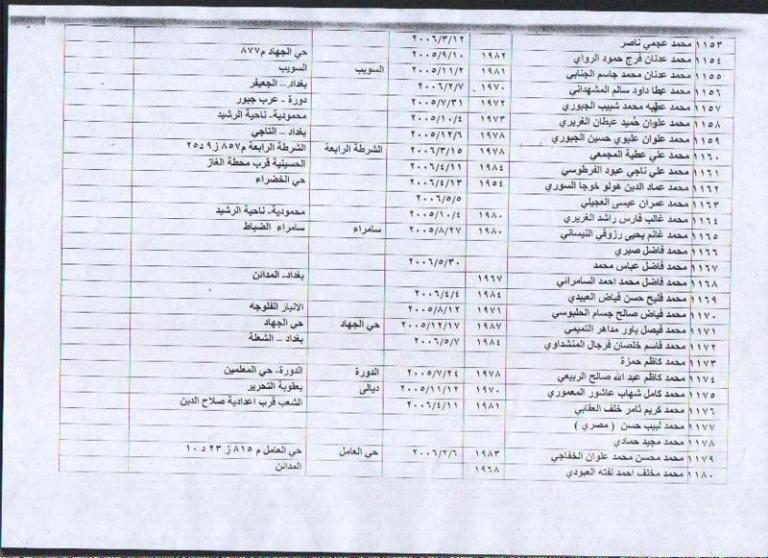 ١١٥٣ محمد عجمي ناصر ٢٠٠٦/٣/١٢
١١٥٤ محمد عدنان فرج حمود الرواي ١٩٨٢ ٢٠٠٥/٩/١٠ حي الجهاد م٨٧٧
١١٥٥ محمد عدنان محمد جاسم الجنابي ١٩٨١ ٢٠٠٥/١١/٢ السويب السويب
١١٥٦ محمد عطا داود سالم المشهداني ١٩٧٠ ٢٠٠٦/٢/٧ بغداد – الجعيفر
١١٥٧ محمد عطيه محمد شبيب الجبوري ١٩٧٢ ٢٠٠٥/٧/٣١ دورة - عرب جبور
١١٥٨ محمد علوان حميد عبطان الغريري ١٩٧٣ ٢٠٠٥/١٠/٤ محمودية- ناحية الرشيد
١١٥٩ محمد علوان عليوي حسين الجبوري ١٩٧٨ ٢٠٠٥/١٢/٦ بغداد – التاجي
١١٦٠ محمد علي عطية المجمعي ١٩٧٨ ٢٠٠٦/٣/١٥ الشرطة الرابعة الشرطة الرابعة م٨٥٧ ز٩ د٢٥
١١٦١ محمد علي ناجي عبود الفرطوسي ١٩٨٤ ٢٠٠٦/٤/١١ الحسينية قرب محطة الغاز
١١٦٢ محمد عماد الدين هولو خوجا السوري ١٩٥٤ ٢٠٠٦/٤/١٣ حي الخضراء
١١٦٣ محمد عمران عيسى العجيلي ٢٠٠٦/٥/٥
١١٦٤ محمد غالب فارس راشد الغريري ١٩٨٠ ٢٠٠٥/١٠/٤ محمودية- ناحية الرشيد
١١٦٥ محمد غانم يحيى رزوقي النيساني ١٩٨٠ ٢٠٠٥/٨/٢٧ سامراء سامراء الضباط
١١٦٦ محمد فاضل صبري
١١٦٧ محمد فاضل عباس محمد ٢٠٠٦/٥/٣٠
١١٦٨ محمد فاضل محمد احمد السامرائي ١٩٦٧ بغداد- المدائن
١١٦٩ محمد فليح حسن فياض العبيدي ١٩٨٤ ٢٠٠٦/٤/٤
١١٧٠ محمد فياض صالح جسام الحلبوسي ١٩٧١ ٢٠٠٥/٨/١٢ الانبار الفلوجه
١١٧١ محمد فيصل ياور مداهر التميمي ١٩٨٧ ٢٠٠٥/١٢/١٧ حي الجهاد حي الجهاد
١١٧٢ محمد قاسم خلصان فرحال المنشداوي ١٩٨٤ ٢٠٠٦/٥/٧ بغداد – الشعلة
١١٧٣ محمد كاظم حمزة
١١٧٤ محمد كاظم عبد الله صالح الربيعي ١٩٧٨ ٢٠٠٥/٧/٢٤ الدورة الدورة- حي المعلمين
١١٧٥ محمد كامل شهاب عاشور المعموري ١٩٧٠ ٢٠٠٥/١١/١٢ ديالى بعقوبة التحرير
١١٧٦ محمد كريم ثامر خلف العقابي ١٩٨١ ٢٠٠٦/٤/١١ الشعب قرب اعدادية صلاح الدين
١١٧٧ محمد لبيب حسن ( مصري )
١١٧٨ محمد مجيد حمادي
١١٧٩ محمد محسن محمد علوان الخفاجي ١٩٨٣ ٢٠٠٦/٢/٦ حي العامل حي العامل م ٨١٥ ز ٢٣ د ١٠
١١٨٠ محمد مخلف احمد لفته العبودي ١٩٦٨ المدائن